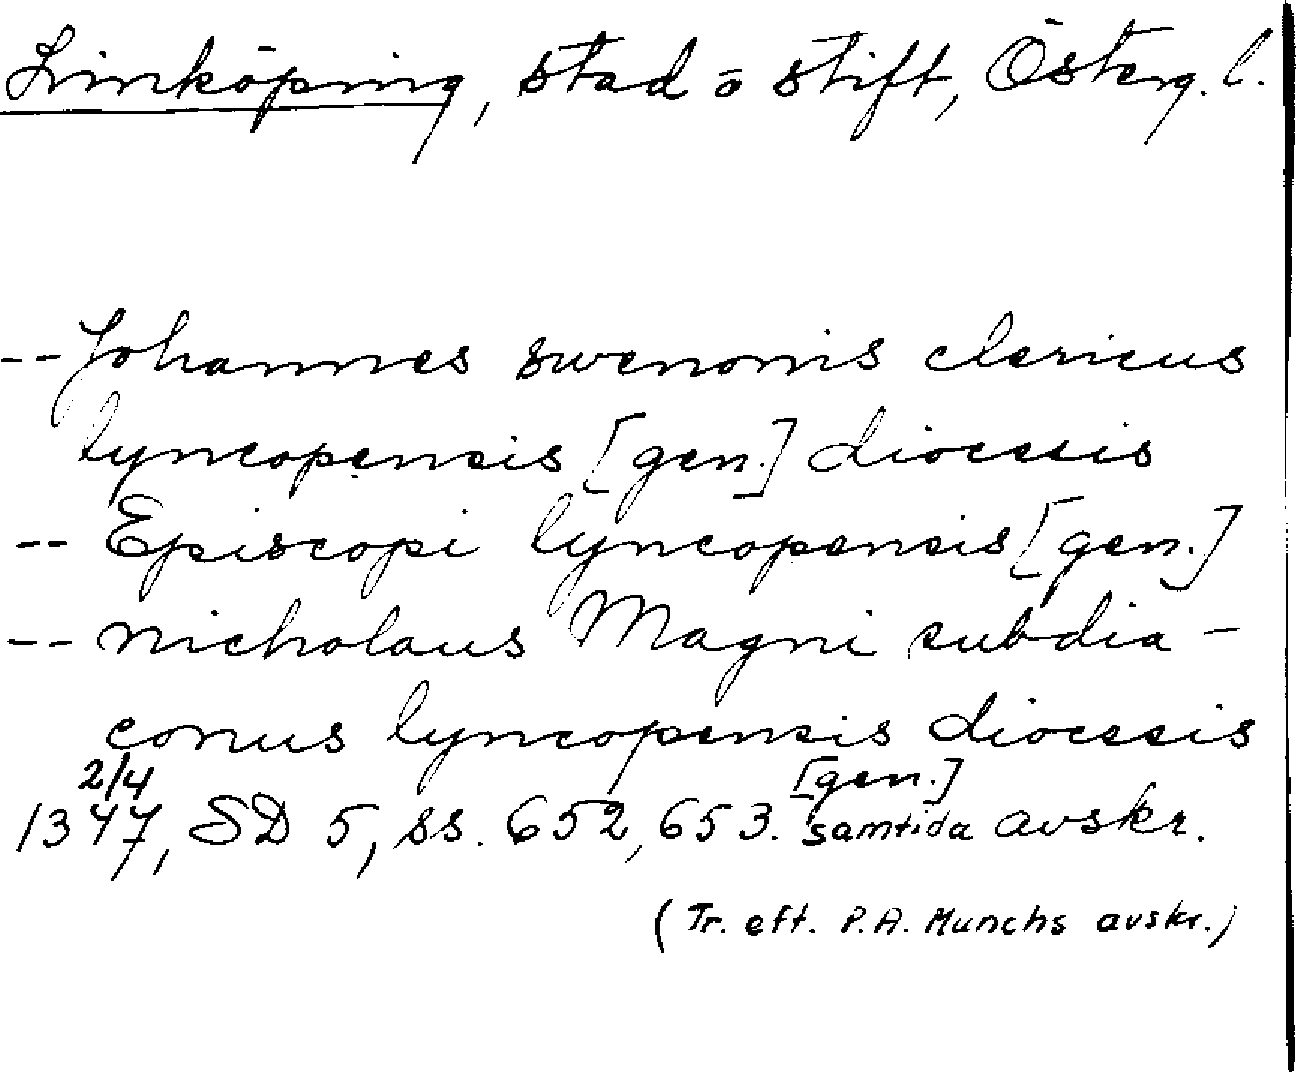 Linköping, stad o stift, Österg. l.
-- Johannes swenonis clericus
lyncopensis [gen.] diocesis
-- Episcopi lyncopensis [gen.]
-- nicholaus Magni subdia-
conus lyncopensis diocesis
2/4 [gen.]
1347, SD 5, ss. 652, 653. samtida avskr.
(Tr. eft. P.A. Munchs avskr.)